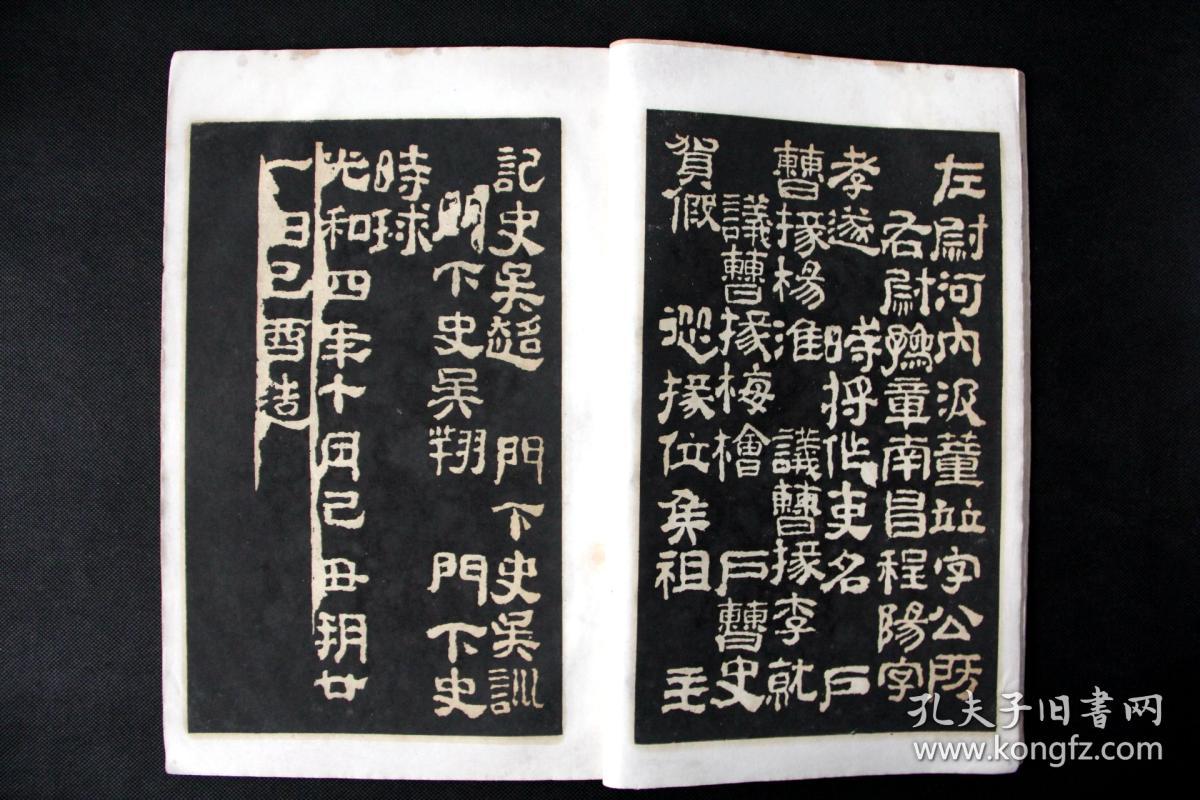 左尉河内汲董並字公房
右尉豫章南昌程陽字
孝遂 時將作吏名 戶
曹掾楊淮 議曹掾李就
議曹掾梅檜 戶曹史
賀 䢔掾位矦祖 主
記史吳超 門下史吳訓
門下史吳翔 門下史
時球
光和四年十月己丑朔廿
一日己酉造
孔夫子旧书网
www.kongfz.com